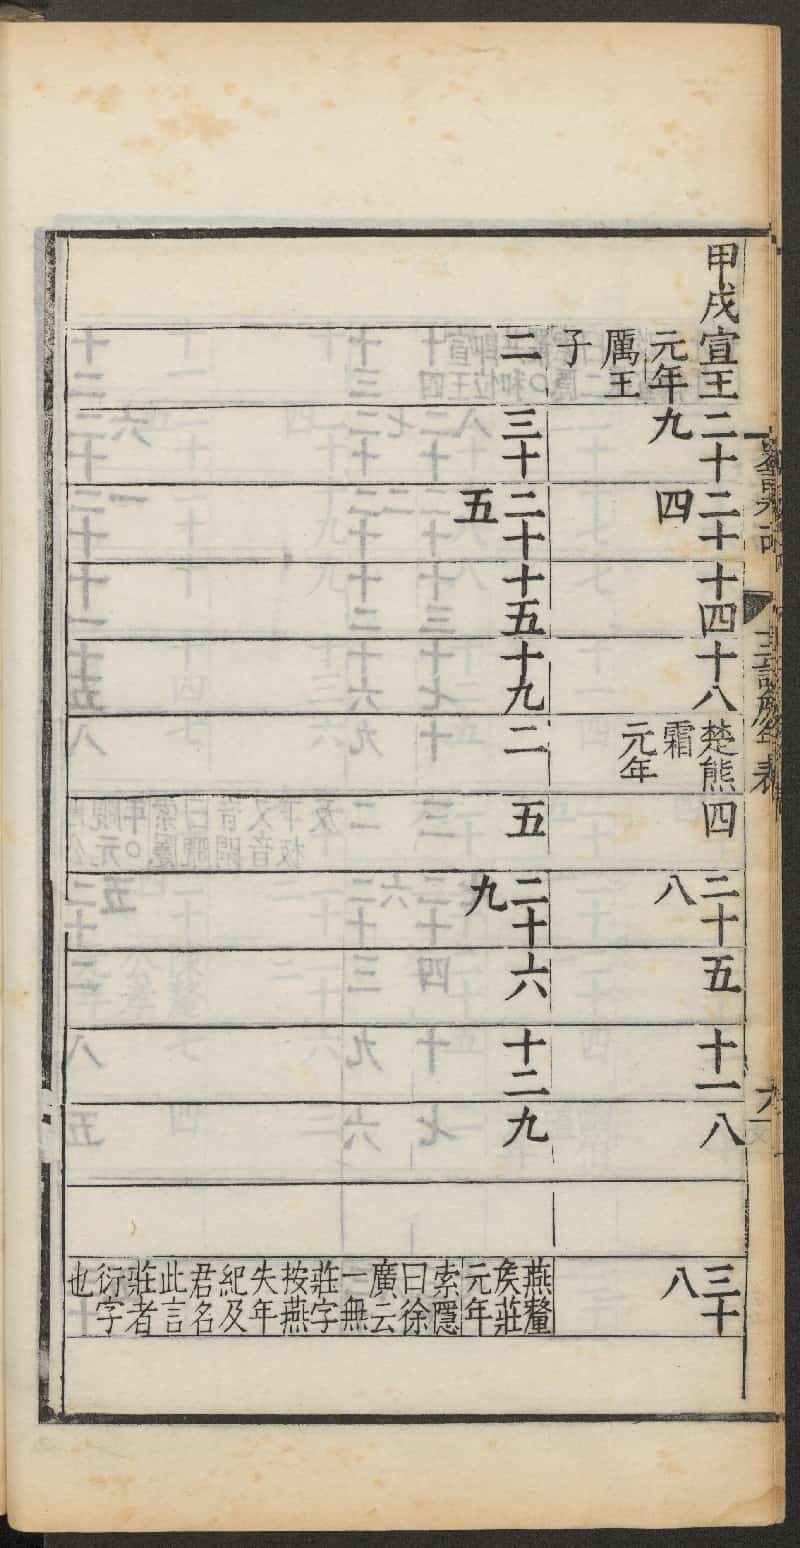 甲戌
宣王
元年
厲王
子
二十
九
二十
四
十四
十八
楚熊
霜
元年
四
二十
八
五
十一
八
三十
八
二
三十
二十
五
十五
十九
二
五
二十
九
六
十二
九
燕釐
矦莊
元年
索隱
曰徐
廣云
一無
莊字
按燕
失年
紀及
君名
此言
莊者
衍字
也